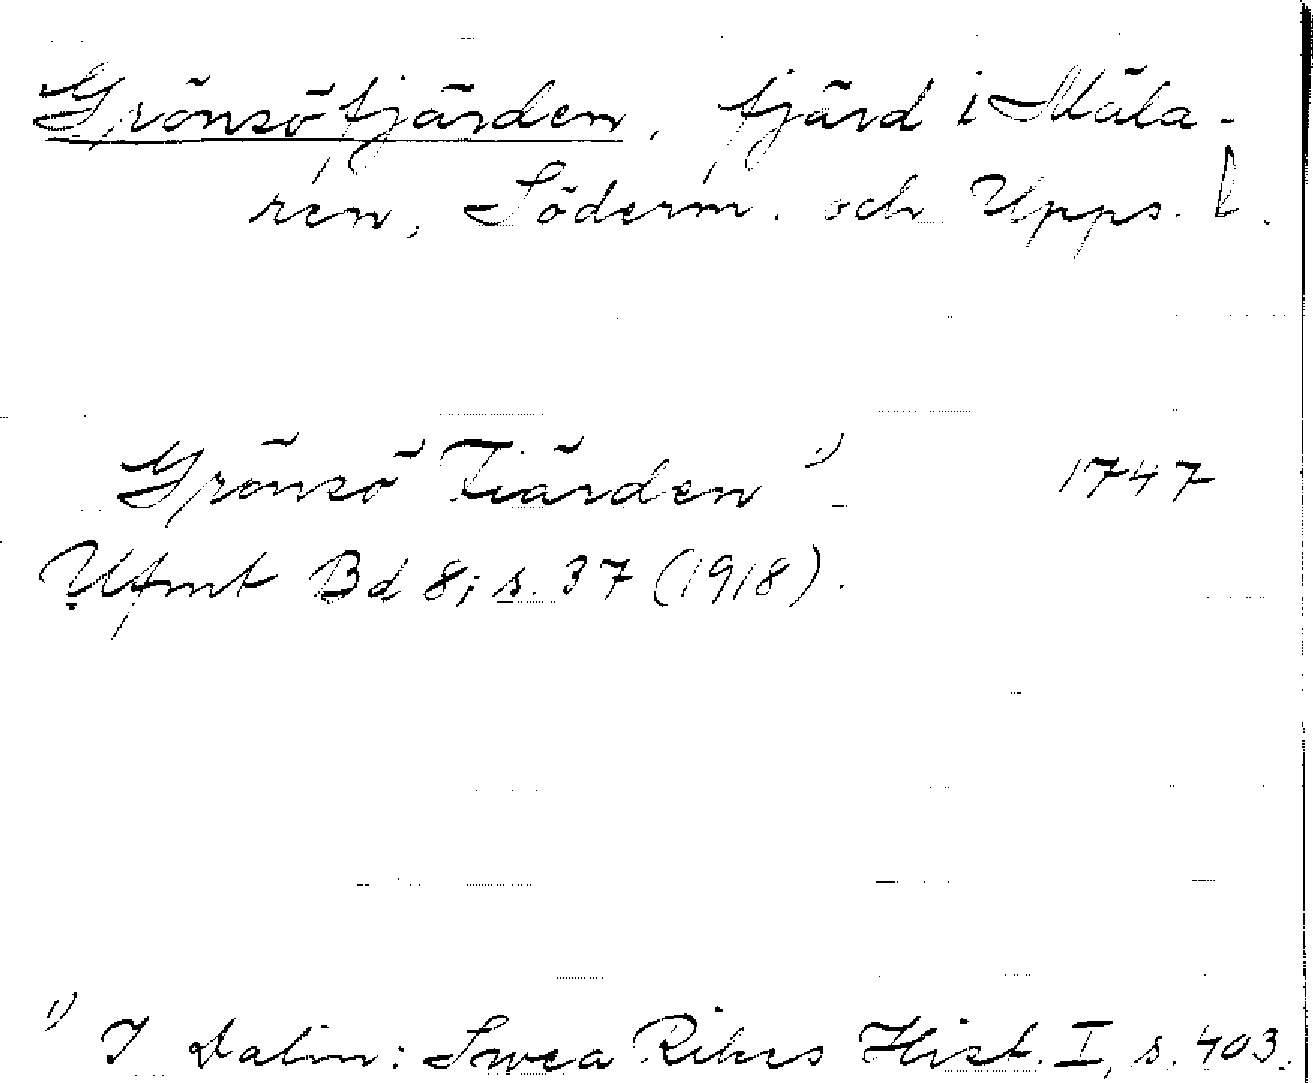 Grönsöfjärden, fjärd i Mäla-
ren, Söderm. och Upps. l.
Grönsö Fiärden 1) 1747
Ufmt Bd 8; s. 37 (1918).
1) I Dalin: Swea Rikes Hist. I, s. 403.